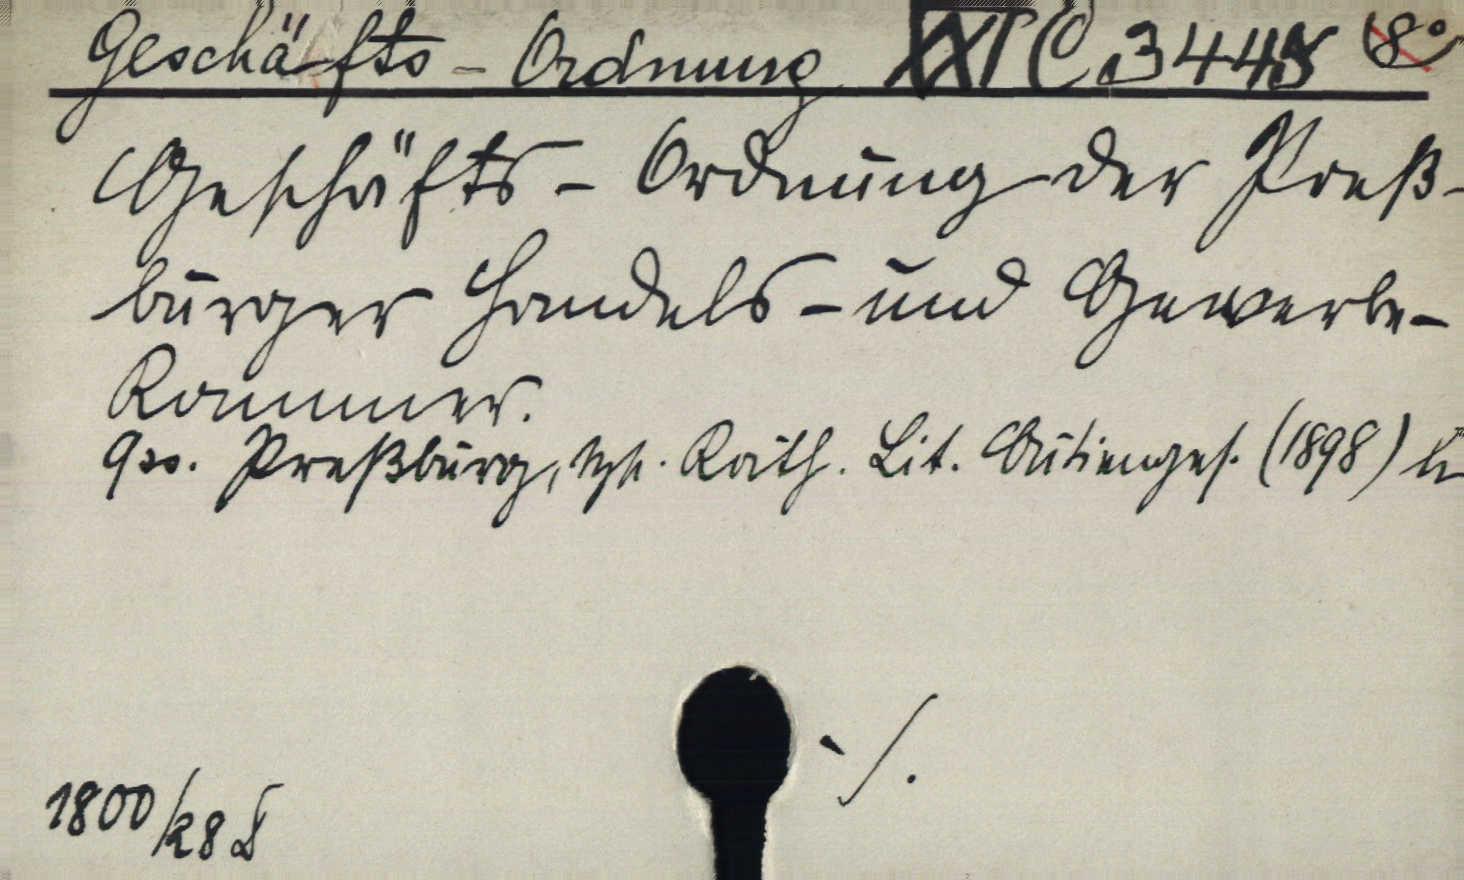 Geschäfts-Ordnung XXI C 3445 8°
Geschäfts-Ordnung der Preß-
burger Handels- und Gewerbe-
Kammer.
Preßburg, Kath. Lit. Actienges. (1898)
1800/28
./.